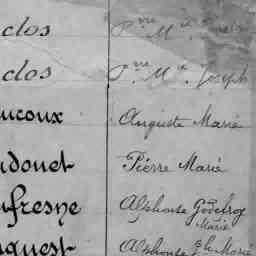 clos Pre Mie
clos Pre Mie Joseph
ucoux Auguste Marie
udouet Pierre Marie
ufresne Alphonse Godefroy
Marie
uquest Alphonse Marie